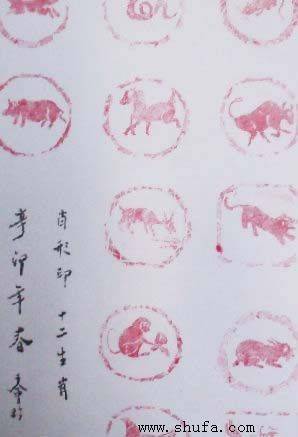 肖形印 十二生肖
辛卯年春
www.shufa.com